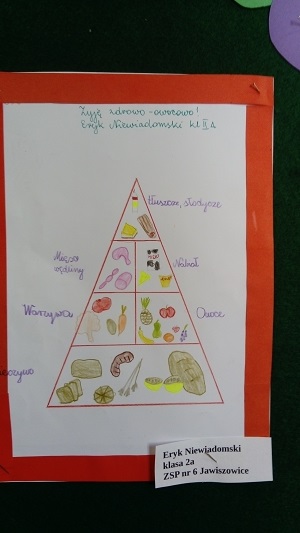 Żyję zdrowo - owocowo!
Eryk Niewiadomski kl. II a
Tłuszcze, słodycze
Mięso
wędliny
Nabiał
Warzywa
Owoce
Eryk Niewiadomski
klasa 2a
ZSP nr 6 Jawiszowice